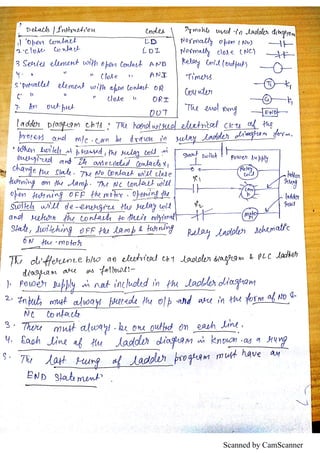 Details / Instruction    Codes
1. Open Contact    LD
2. Close Contact    LDI
3. Series element with open contact    AND
4. " " " close "    ANI
5. Parallel element with open contact    OR
6. " " " close "    ORI
7. An output    OUT
Symbols used in ladder diagram
Normally open (NO)
Normally close (NC)
Relay Coil (output)
Timers
Counter
The end rung    END
Ladder diagram ckts: The hardwired electrical ckts of the
process and m/c can be drawn in relay ladder diagram form.
• When switch is pressed, the relay coil is
energized and its associated contacts
change the state. The NO contact will close
turning on the lamp. The NC contact will
open turning off the motor. Opening the
switch will de-energize the relay coil
and return the contacts to their original
state, switching OFF the lamp & turning
ON the motor
Switch
Power supply
Relay
Coil
R1
Lamp
R2
Motor
ladder
rung
ladder
Relay ladder schematic
The difference b/w an electrical ckt ladder diagram & PLC ladder
diagram are as follows:-
1. Power supply is not included in the ladder diagram
2. Inputs must always precede the o/p and are in the form of NO &
NC contacts
3. There must always be one output on each line.
4. Each line of the ladder diagram is known as a rung
5. The last rung of ladder program must have an
END statement.
Scanned by CamScanner